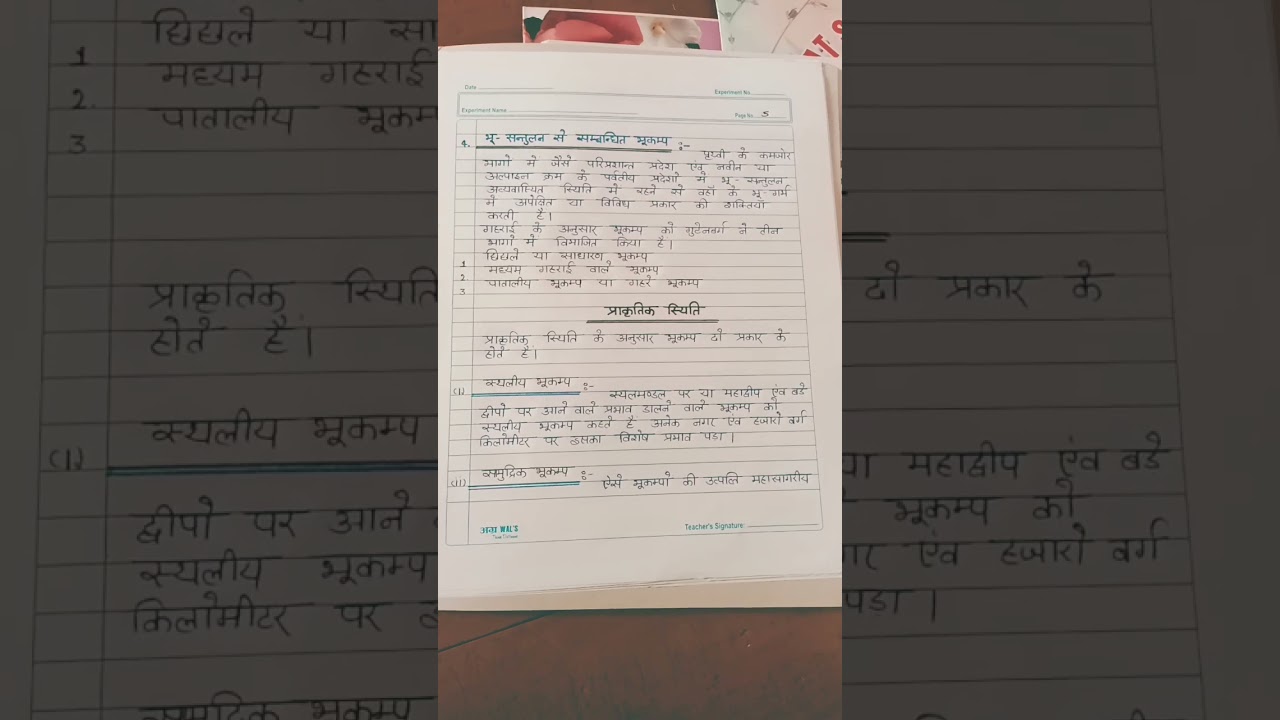 Date
Experiment No.
Experiment Name
Page No. 5
4. भू- सन्तुलन से सम्बन्धित भूकम्प :- पृथ्वी के कमजोर
भागो में जैसे परिप्रशान्त प्रदेश एंव नवीन या
अल्पाइन क्रम के पर्वतीय प्रदेशो में भू- सन्तुलन
अव्यवास्थित स्थिति में रहने से वहाँ के भू-गर्भ
में अपेक्षित या विविध प्रकार की शक्तियाँ
करती है।
गहराई के अनुसार भूकम्प को गुटेनबर्ग ने तीन
भागो में विभाजित किया है।
1 छिछले या साधारण भूकम्प
2 मध्यम गहराई वाले भूकम्प
3 पातालीय भूकम्प या गहरे भूकम्प
प्राकृतिक स्थिति
प्राकृतिक स्थिति के अनुसार भूकम्प दो प्रकार के
होते है।
(I) स्थलीय भूकम्प :- स्थलमण्डल पर या महाद्वीप एंव बडे
द्वीपो पर आने वाले प्रभाव डालने वाले भूकम्प को
स्थलीय भूकम्प कहते है अनेक नगर एंव हजारो वर्ग
किलोमीटर पर इसका विशेष प्रभाव पडा।
(II) समुद्रिक भूकम्प :- ऐसे भूकम्पो की उत्पति महासागरीय
WAL'S
Teacher's Signature: